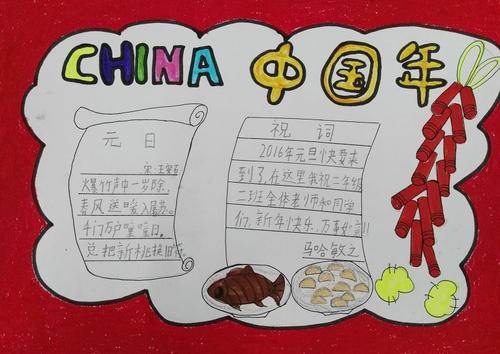 CHINA 中国年
元日
宋:王安石
爆竹声中一岁除,
春风送暖入屠苏。
千门万户曈曈日,
总把新桃换旧符。
祝词
2016年元旦快要来
到了,在这里我祝二年级
二班全体老师和同学
们,新年快乐,万事如意!!
马哈敏之